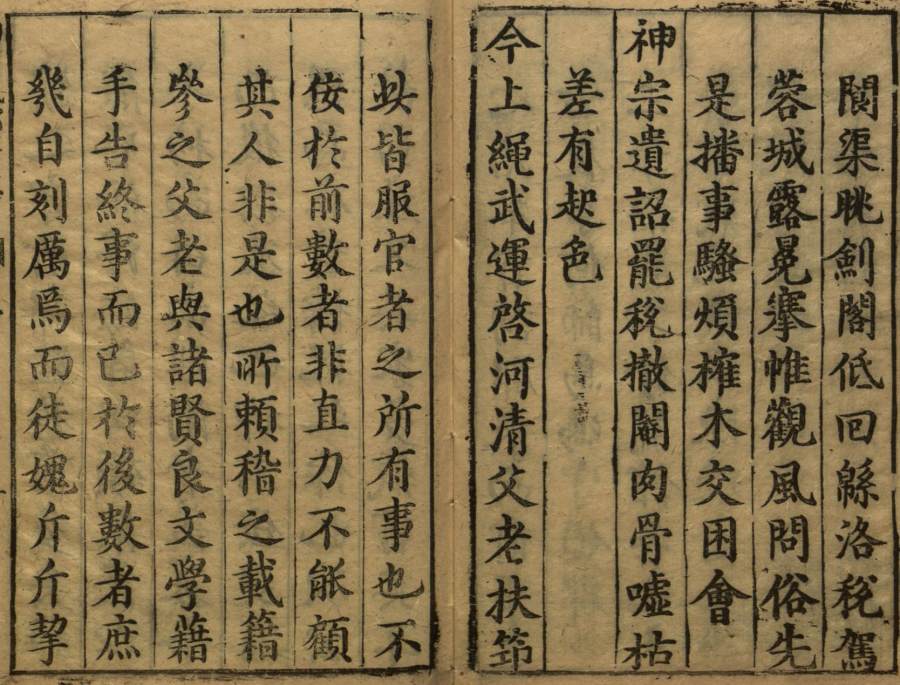 閬渠眺劍閣低回緜洛稅駕
蓉城露冕搴帷觀風問俗先
是播事騷煩榷木交困會
神宗遺詔罷稅撤閹肉骨噓枯
差有起色
今上繩武運啓河清父老扶筇
此皆服官者之所有事也不
佞於前數者非直力不能顧
其人非是也所賴稽之載籍
參之父老與諸賢良文學藉
手告終事而已於後數者庶
幾自刻厲焉而徒媿斤斤挈